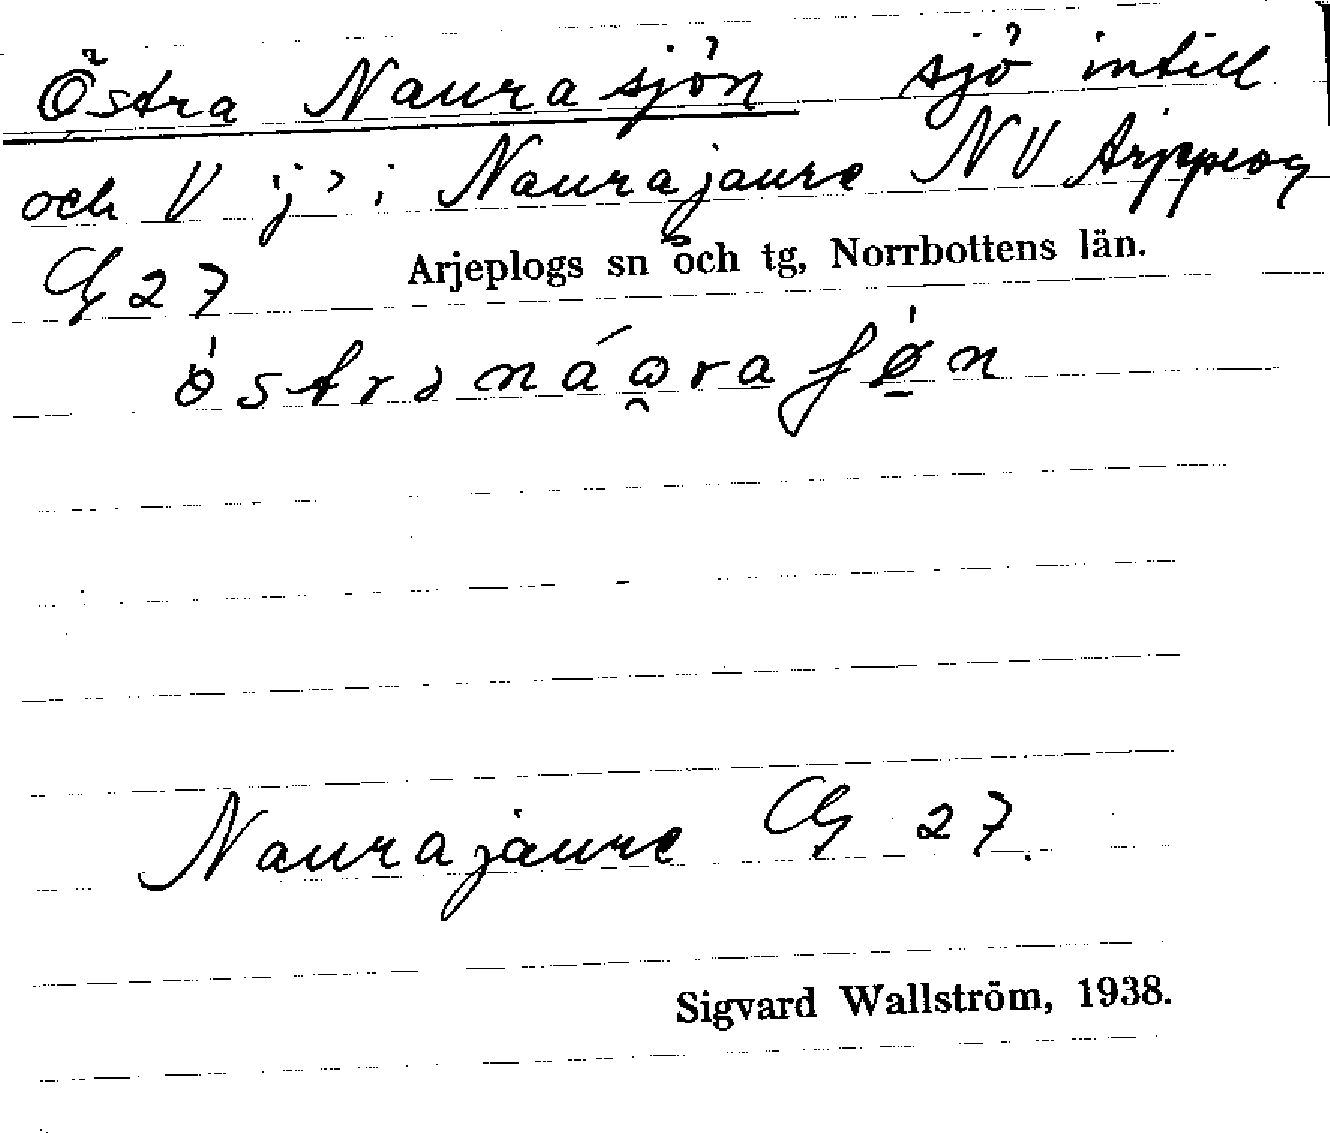 Östra Naurasjön sjö intill
och V i Naurajaure NV Arjeplog
G 27 Arjeplogs sn och tg, Norrbottens län.
Naurajaure G 27.
Sigvard Wallström, 1938.